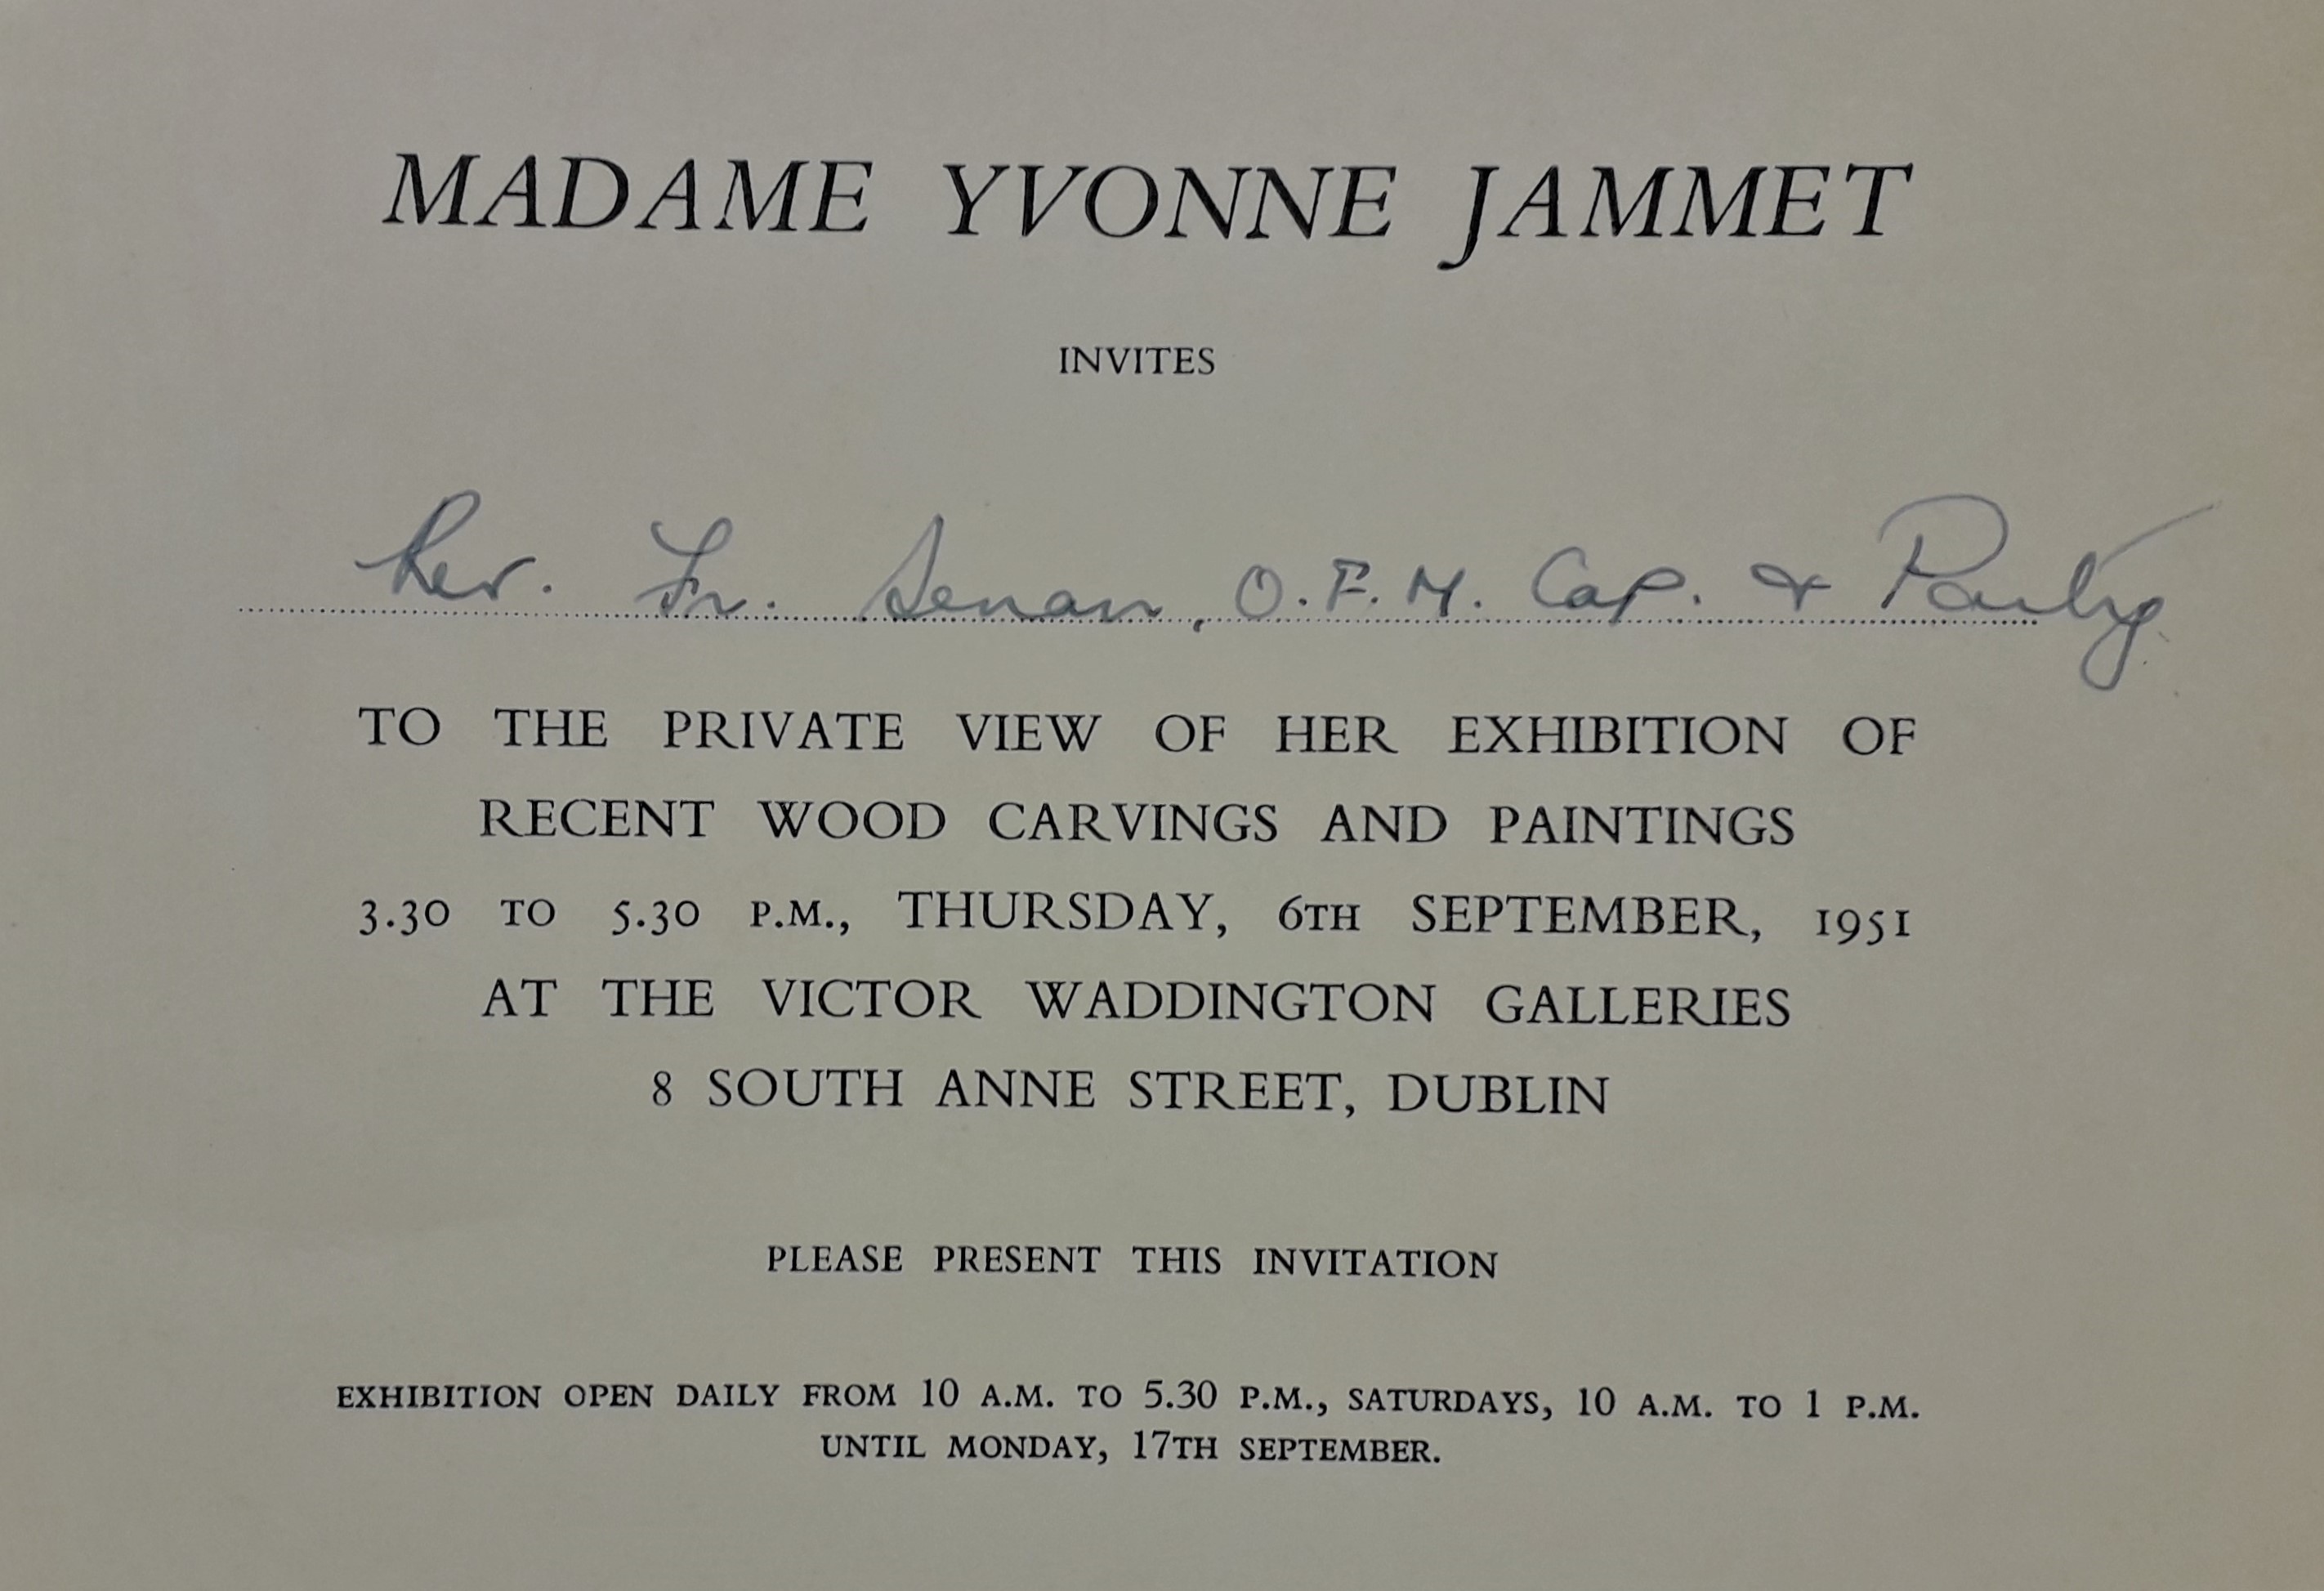 MADAME YVONNE JAMMET
INVITES
Rev. Fr. Senan, O.F.M. Cap. & Party
TO THE PRIVATE VIEW OF HER EXHIBITION OF
RECENT WOOD CARVINGS AND PAINTINGS
3.30 TO 5.30 P.M., THURSDAY, 6TH SEPTEMBER, 1951
AT THE VICTOR WADDINGTON GALLERIES
8 SOUTH ANNE STREET, DUBLIN
PLEASE PRESENT THIS INVITATION
EXHIBITION OPEN DAILY FROM 10 A.M. TO 5.30 P.M., SATURDAYS, 10 A.M. TO 1 P.M.
UNTIL MONDAY, 17TH SEPTEMBER.